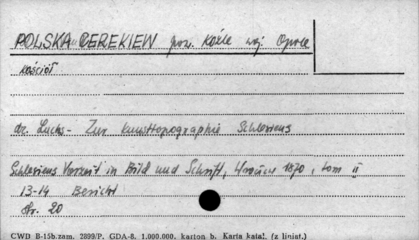 POLSKA CEREKIEW pow. Koźle woj. Opole
kościół
dr. Luchs - Zur Kunsttopographie Schlesiens
Schlesiens Vorzeit in Bild und Schrift, 1870, tom II
13-14 Bericht
str. 20
CWD B-15b.zam. 2899/P. GDA-8. 1.000.000. karton b. Karta katal. (z liniat.)